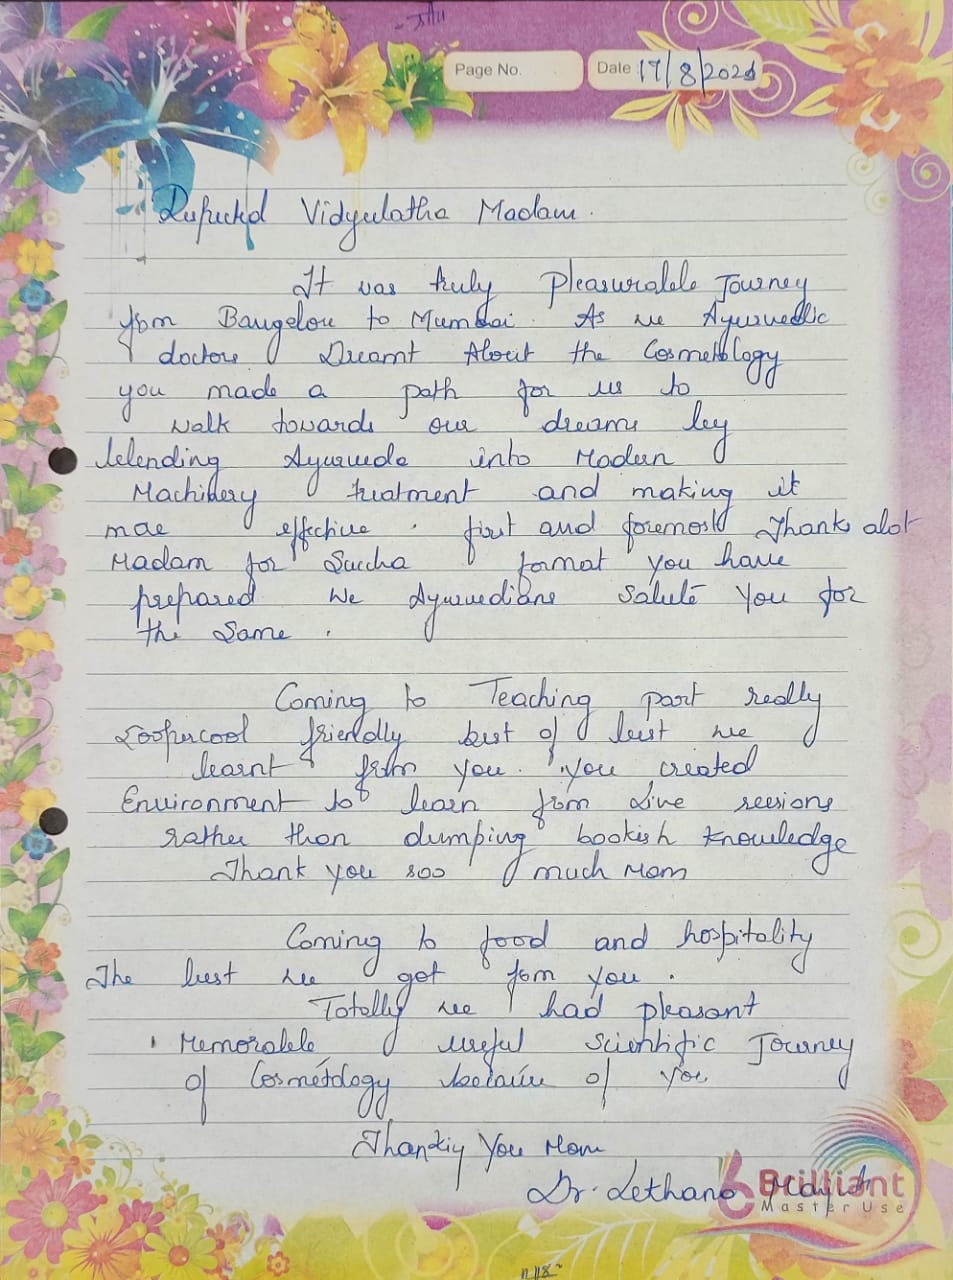 Page No.
Date 17/8/2021
Respected Vidyulatha Madam.
It was truly Pleasurable Journey
from Bangelore to Mumbai. As we Ayurvedic
doctors Dreamt About the Cosmetology
you made a path for us to
walk towards our dreams by
blending Ayurveda into Modern
Machinery treatment and making it
more effective. first and foremost Thanks alot
Madam for Succha format you have
prepared We Ayurvedians Salute You for
the Same.
Coming to Teaching part really
Soopercool friendly best of best we
learnt from you. You created
Environment to learn from Live sessions
rather than dumping bookish knowledge
Thank you soo much Mam
Coming to food and hospitality
The best we get from you.
Totally we had pleasant
Memorable useful scientific Journey
of Cosmetology because of you
Thanking You Mam
Dr.
Brilliant
Master Use